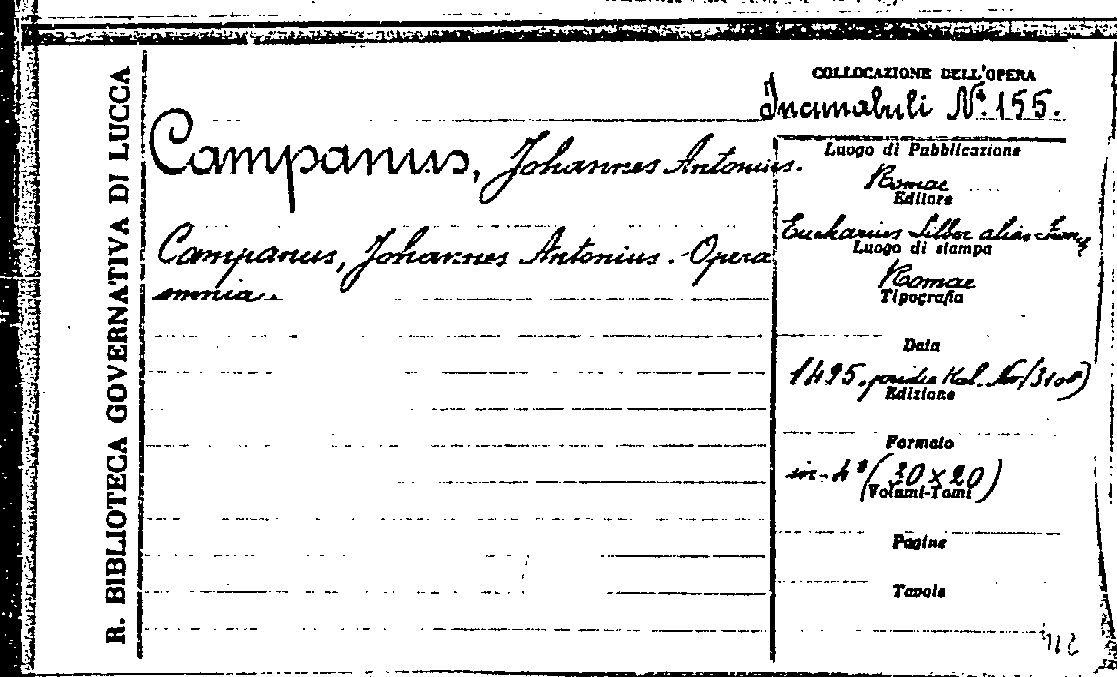 R. BIBLIOTECA GOVERNATIVA DI LUCCA
COLLOCAZIONE DELL'OPERA
Incunabuli N.º 155.
Campanus, Johannes Antonius.
Campanus, Johannes Antonius. Opera
omnia.
Luogo di Pubblicazione
Romae
Editore
Eucharius Silber alias
Luogo di stampa
Romae
Tipografia
Data
1495, pridie Kal. Nov
Edizione
Formato
in-4º (30 x 20)
(Volumi-Tomi
Pagine
Tavole